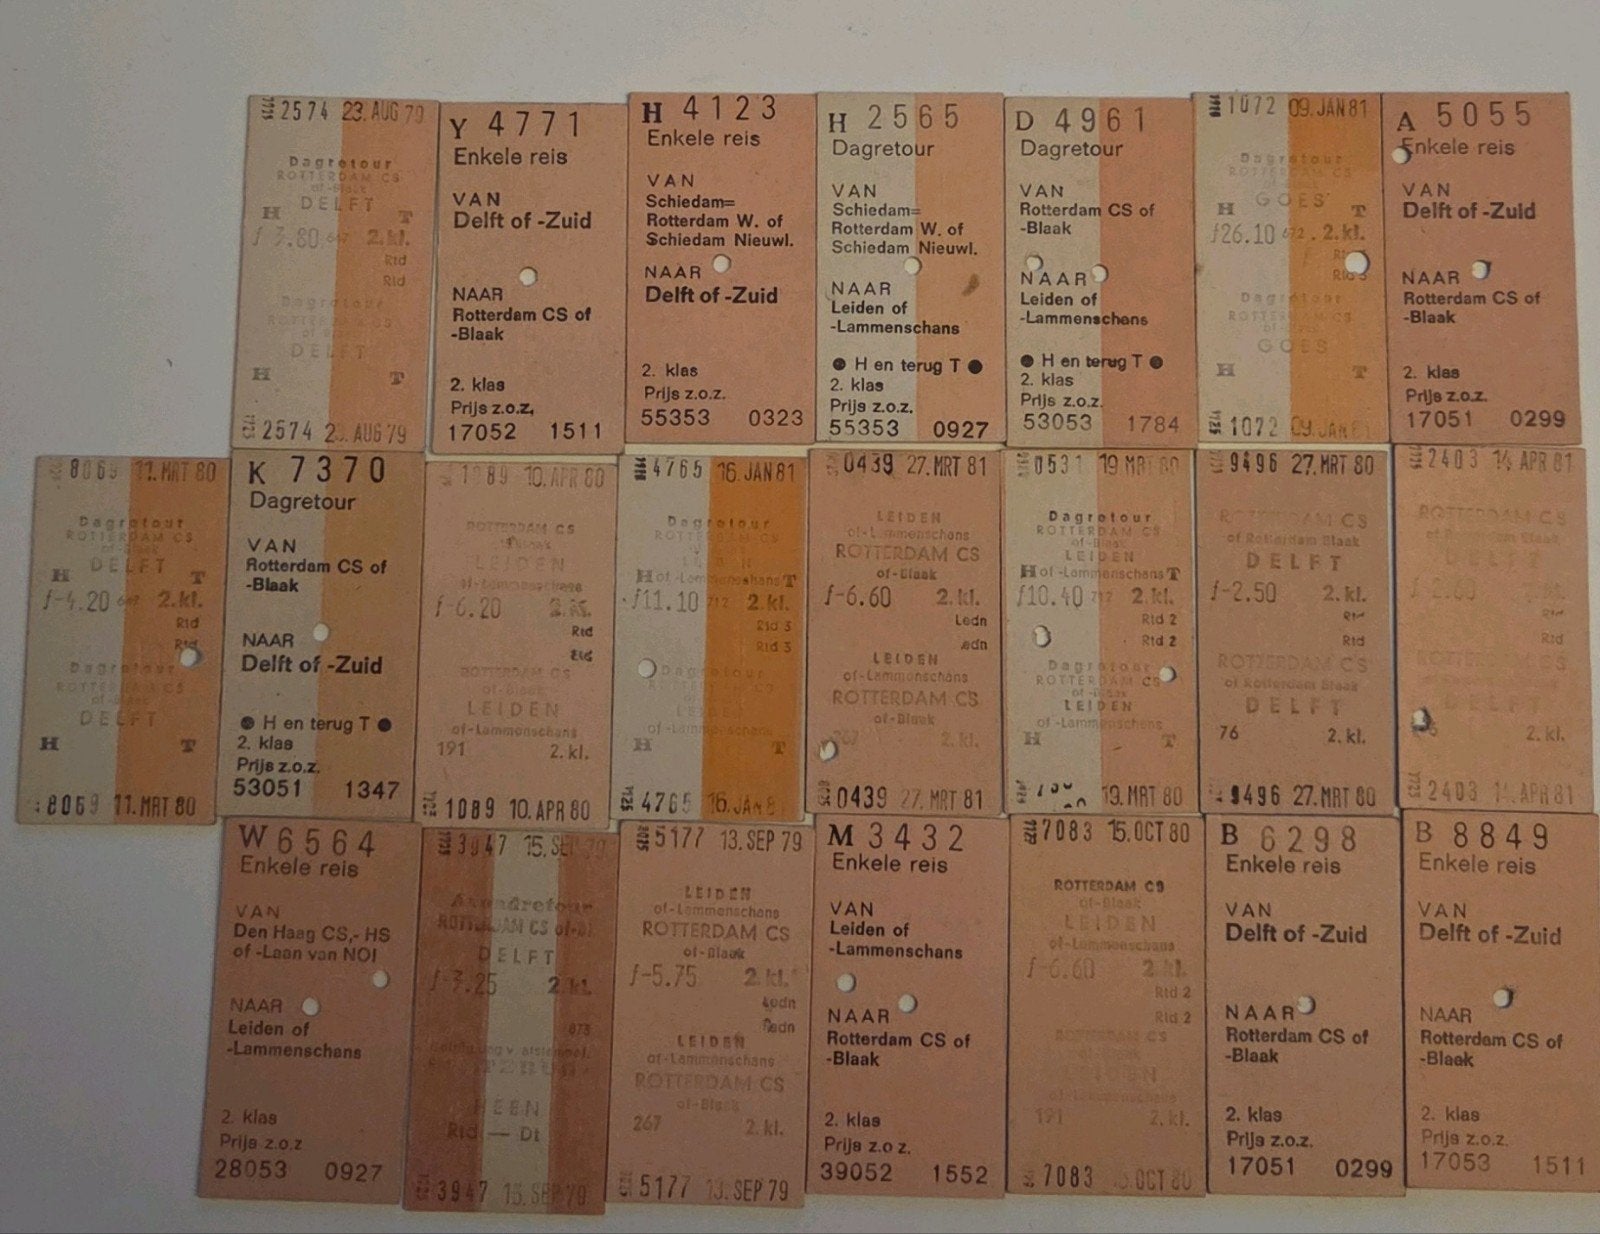 2574 23. AUG 79
Dagretour
ROTTERDAM CS
of-Blaak
DELFT
H T
f 3.80 2.kl.
Rtd
Rtd
Dagretour
ROTTERDAM CS
DELFT
H T
2574 AUG 79
Y 4771
Enkele reis
VAN
Delft of -Zuid
NAAR
Rotterdam CS of
-Blaak
2. klas
Prijs z.o.z.
17052 1511
H 4123
Enkele reis
VAN
Schiedam=
Rotterdam W. of
Schiedam Nieuwl.
NAAR
Delft of -Zuid
2. klas
Prijs z.o.z.
55353 0323
H 2565
Dagretour
VAN
Schiedam=
Rotterdam W. of
Schiedam Nieuwl.
NAAR
Leiden of
-Lammenschans
● H en terug T ●
2. klas
Prijs z.o.z.
55353 0927
D 4961
Dagretour
VAN
Rotterdam CS of
-Blaak
NAAR
Leiden of
-Lammenschans
● H en terug T ●
2. klas
Prijs z.o.z.
53053 1784
1072 09. JAN 81
Dagretour
ROTTERDAM CS
GOES
H T
f26.10 672 . 2.kl.
Dagretour
ROTTERDAM CS
GOES
H T
1072 09. JAN 81
A 5055
Enkele reis
VAN
Delft of -Zuid
NAAR
Rotterdam CS of
-Blaak
2. klas
Prijs z.o.z.
17051 0299
8069 11. MRT 80
Dagretour
ROTTERDAM CS
of-Blaak
DELFT
H T
f-4.20 2.kl.
Rtd
Rtd
Dagretour
ROTTERDAM CS
DELFT
H T
8069 11. MRT 80
K 7370
Dagretour
VAN
Rotterdam CS of
-Blaak
NAAR
Delft of -Zuid
● H en terug T ●
2. klas
Prijs z.o.z.
53051 1347
1089 10. APR 80
ROTTERDAM CS
of-Blaak
LEIDEN
of-Lammenschans
f-6.20 2.kl.
Rtd
Rtd
ROTTERDAM CS
of-Blaak
LEIDEN
of-Lammenschans
191 2. kl.
1089 10. APR 80
4765 16. JAN 81
Dagretour
ROTTERDAM CS
LEIDEN
H of -Lammenschans T
f11.10 712 2.kl.
Rtd 3
Rtd 3
Dagretour
LEIDEN
of -Lammenschans
H T
4765 16. JAN 8
0439 27. MRT 81
LEIDEN
of-Lammenschans
ROTTERDAM CS
of-Blaak
f-6.60 2.kl.
Ledn
edn
LEIDEN
of-Lammenschans
ROTTERDAM CS
of-Blaak
267 2. kl.
0439 27. MRT 81
0531 19 MRT 80
Dagretour
ROTTERDAM CS
of -Blaak
LEIDEN
H of -Lammenschans T
f10.40 712 2.kl.
Rtd 2
Rtd 2
Dagretour
ROTTERDAM CS
of -Blaak
LEIDEN
of -Lammenschans
H T
19. MRT 80
9496 27. MRT 80
ROTTERDAM CS
of Rotterdam Blaak
DELFT
f-2.50 2.kl.
Rtd
ROTTERDAM CS
of Rotterdam Blaak
DELFT
76 2. kl.
9496 27. MRT 80
2403 14 APR 81
ROTTERDAM CS
of Rotterdam Blaak
DELFT
2. kl.
Rtd
ROTTERDAM CS
of Rotterdam Blaak
DELFT
2. kl.
2403 14. APR 81
W 6564
Enkele reis
VAN
Den Haag CS,- HS
of -Laan van NOI
NAAR
Leiden of
-Lammenschans
2. klas
Prijs z.o.z
28053 0927
3947 15. SEP 79
Avondretour
ROTTERDAM CS of-Bl.
DELFT
f-3.25 2.kl.
873
HEEN
Rtd — Dt
3947 15. SEP 79
5177 13. SEP 79
LEIDEN
of-Lammenschans
ROTTERDAM CS
of-Blaak
f-5.75 2.kl.
Ledn
Ledn
LEIDEN
of-Lammenschans
ROTTERDAM CS
of-Blaak
267 2. kl.
5177 13. SEP 79
M 3432
Enkele reis
VAN
Leiden of
-Lammenschans
NAAR
Rotterdam CS of
-Blaak
2. klas
Prijs z.o z.
39052 1552
7083 15. OCT 80
ROTTERDAM CS
of-Blaak
LEIDEN
of-Lammenschans
f-6.60 2 kl.
Rtd 2
Rtd 2
ROTTERDAM CS
of-Blaak
LEIDEN
of-Lammenschans
191 2. kl.
7083 OCT 80
B 6298
Enkele reis
VAN
Delft of -Zuid
NAAR
Rotterdam CS of
-Blaak
2. klas
Prijs z.o.z.
17051 0299
B 8849
Enkele reis
VAN
Delft of -Zuid
NAAR
Rotterdam CS of
-Blaak
2. klas
Prijs z.o.z.
17053 1511